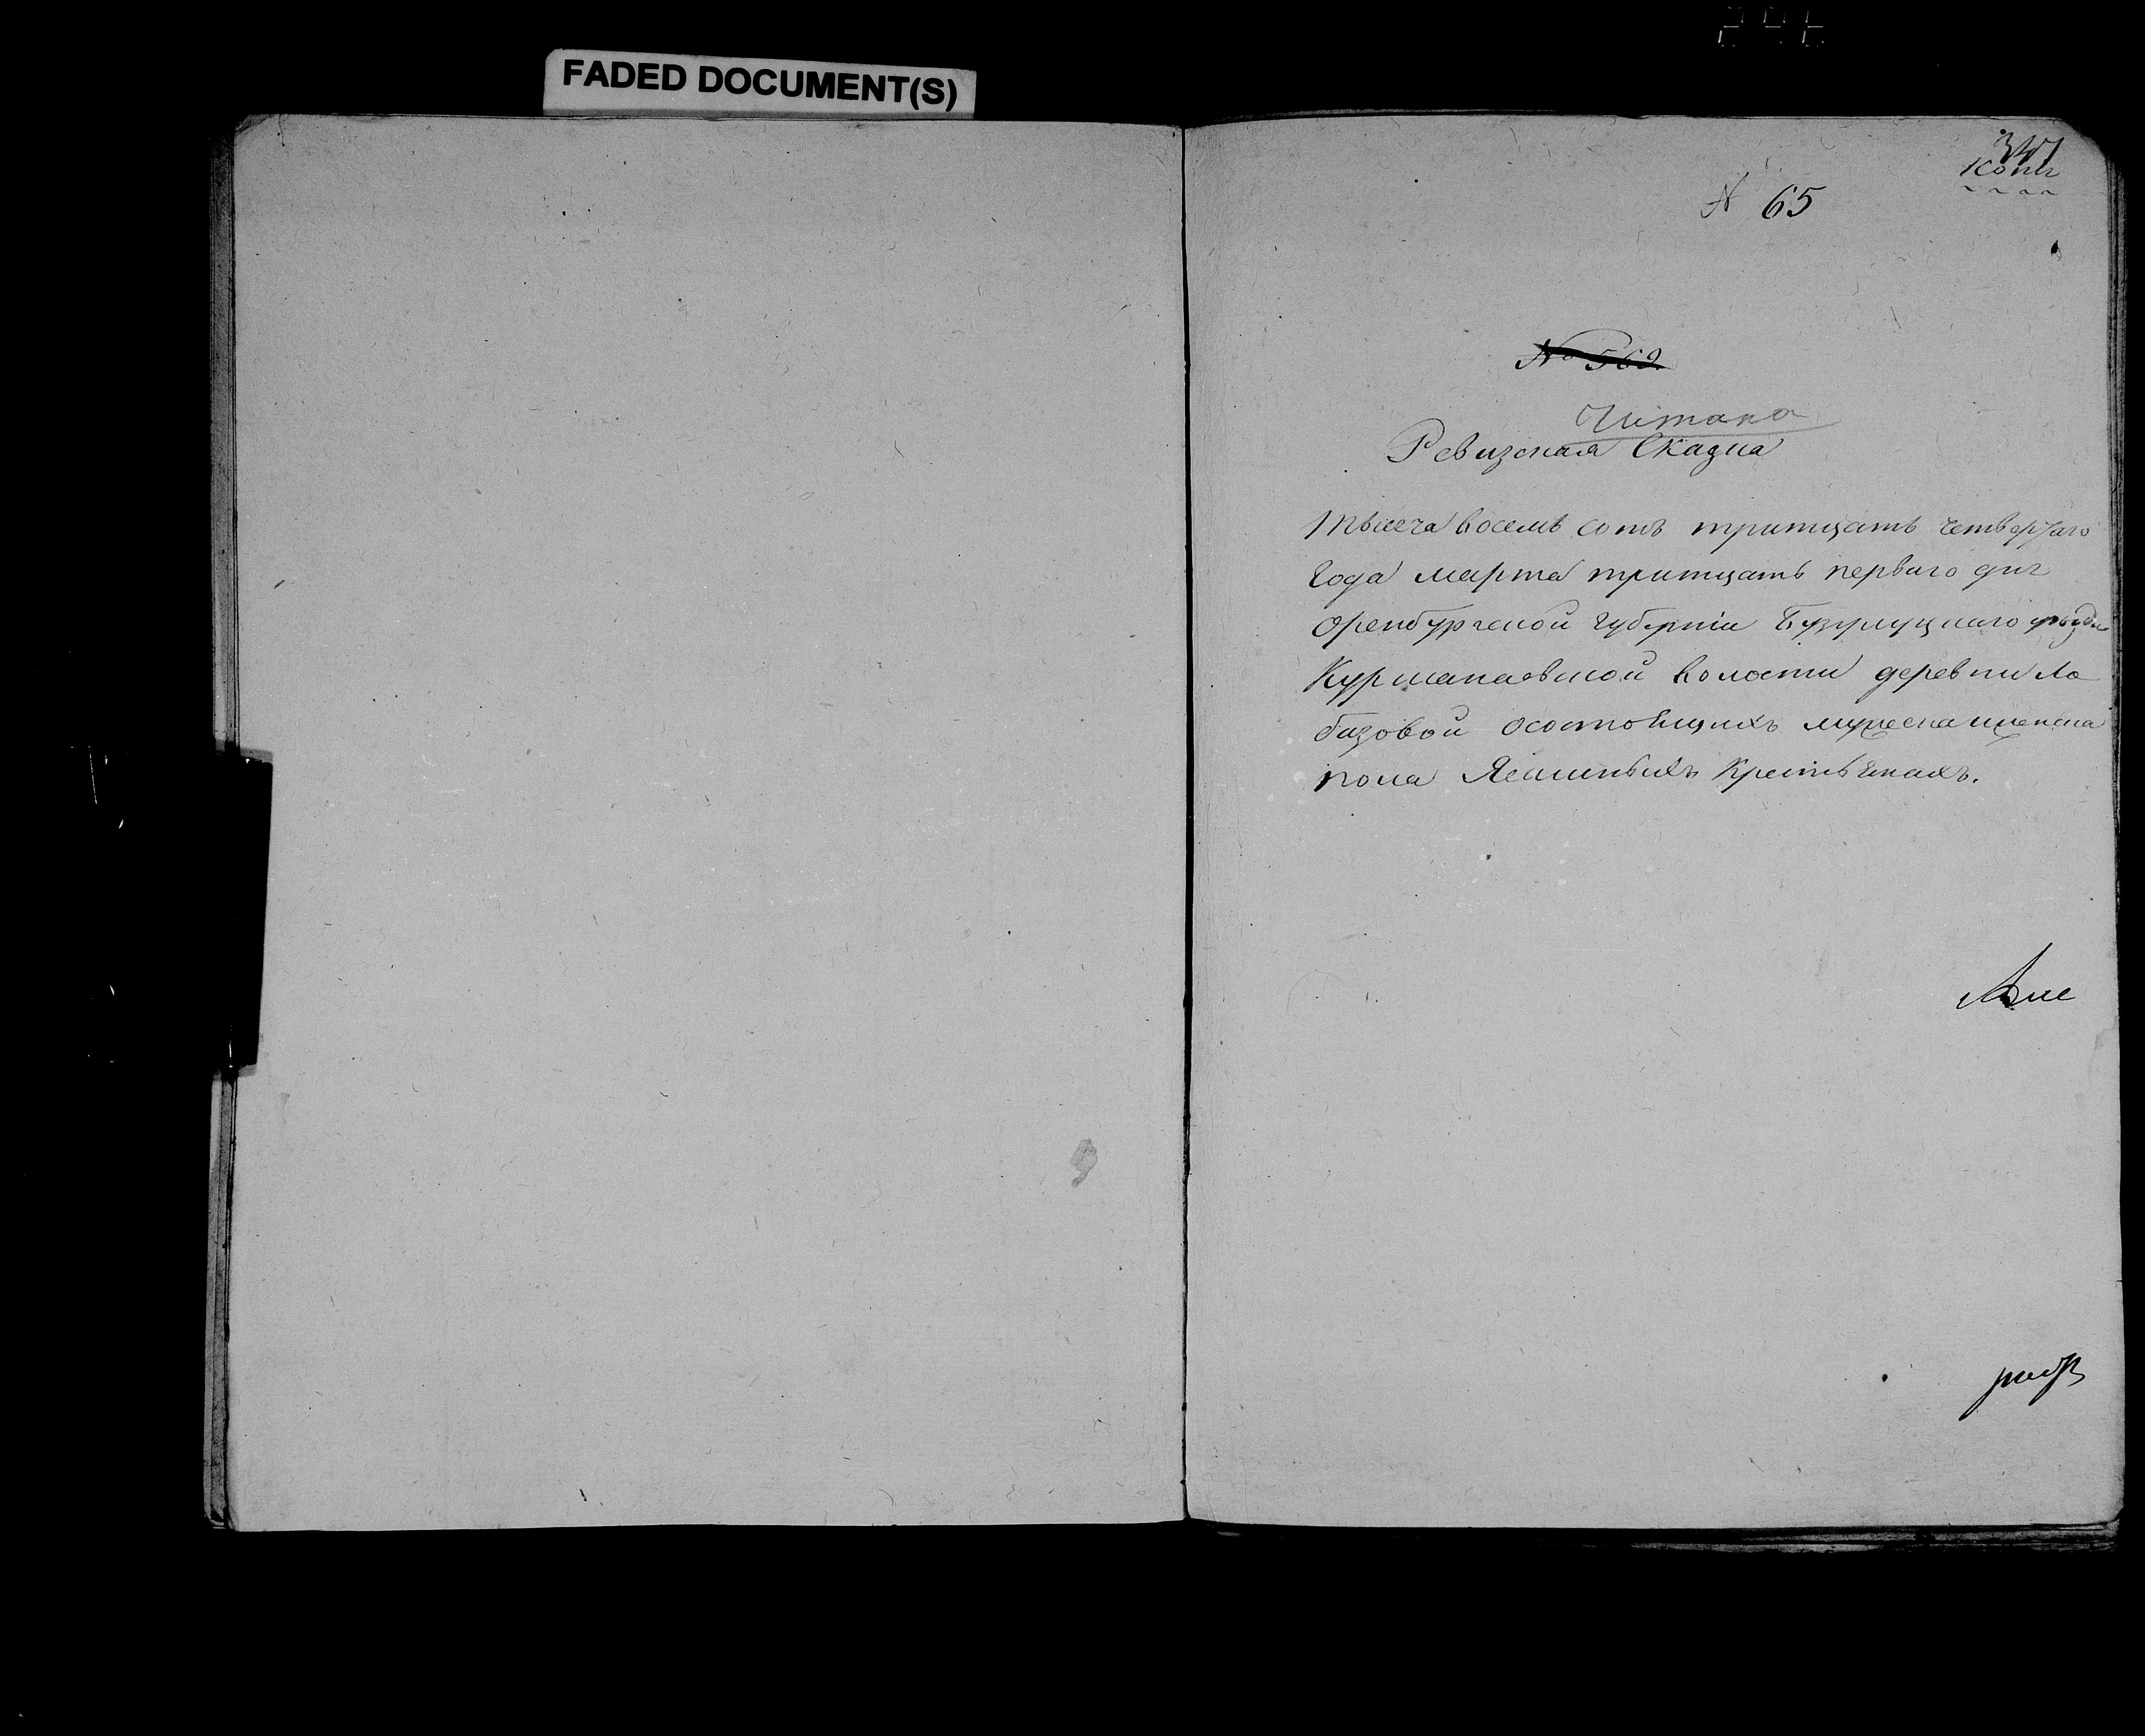 FADED DOCUMENT(S)
347
Копія
№ 65
№ 562
Читана
Ревизская Сказка
Тысеча восемь сотъ тритцать четвертаго
года марта тритцать перваго дня
Оренбургской губерніи Бузулуцкаго уезда
Курманаевской волости деревни Ло
базовой осостоящихъ мужеска иженска
пола Ясашныхъ Крестьянахъ.